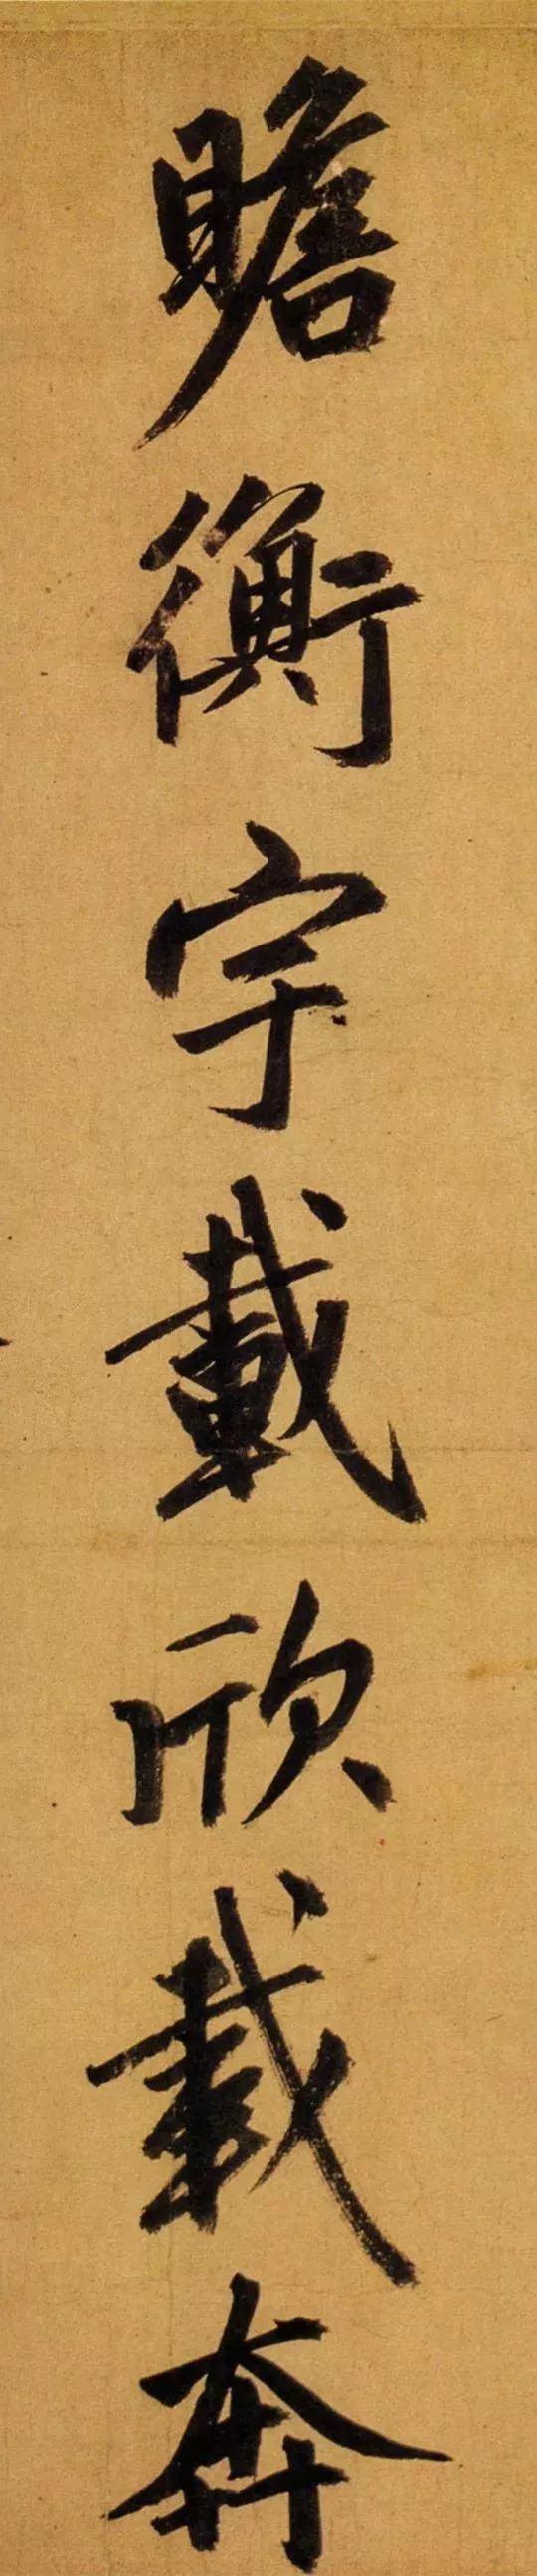 瞻衡宇載欣載奔